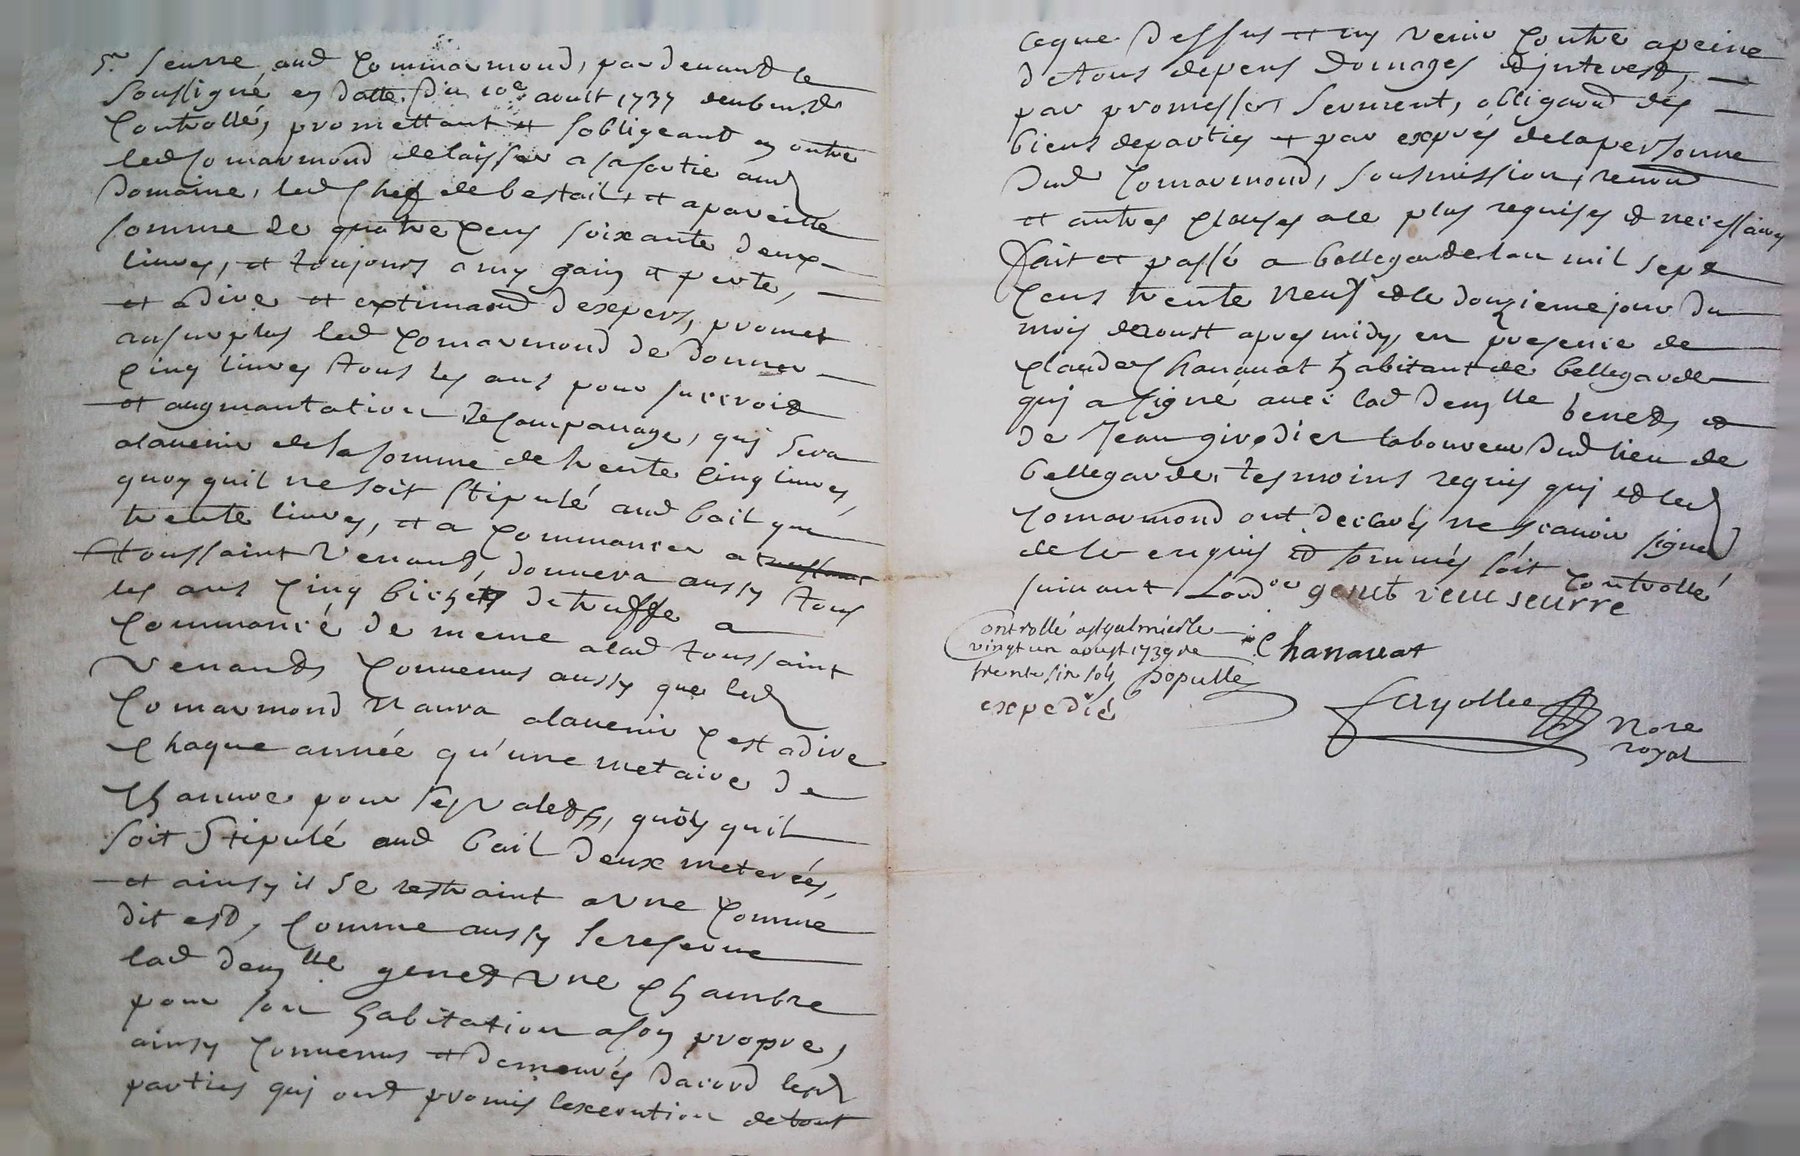 Sr Seurre aud Commarmond, par devant le
soussigné en datte du 10e aoust 1737 deubement
Controllé, promettant et sobligeant en outre
led Comarmond delaisser a sa sortie aud
Domaine, led Chef de bestail, et apareille
somme de quatre Cens soixante deux
livres, et toujours a my gain et perte,
et adire et extimaon dexpers, promet
ausurplus led Comarmond de donner
Cinq livres tous les ans pour surcroid
et augmantation de Companage, qui sera
alavenir de la somme de trente Cinq livres,
quoy quil ne soit stipulé aud bail que
trente livres, et a Commancer a
toussaint Venant, donnera aussy tous
les ans Cinq bichets de truffe a
Commancé de meme alad toussaint
Venant, Convenus aussy que led
Comarmond n'aura alavenir Cest adire
Chaque année qu'une metaire de
Chanvre pour ses valets, quoy quil
soit stipulé aud bail deux meterées,
et ainsy il se restraint a une Comme
dit est, Comme aussy se reserve
lad demlle genet une Chambre
pour son habitation a son propre,
ainsy Convenus et demeurés dacord lesd
parties qui ont promis lexecution de tout
ceque dessus et ny venir Contre apeine
de tous depens domages et interest,
par promesses, serment, obligaon des
biens departies et par exprés de la personne
dud Comarmond, soumission, renon
et autres Clauses ale plus requises et necessaires
fait et passé a bellegarde lan mil sept
Cens trente neuf et le douzieme jour du
mois de aoust apres midy, en presence de
Claude Chanavat habitant de bellegarde
qui a signé avec lad demlle benet, et
de Jean girodier laboureur dud lieu de
bellegarde, tesmoins requis qui et led
Comarmond ont declarés ne scavoir signer
de le enquis et sommés soit Controllé
suivant Lordce genet veuve seurre
Chanavat
Controllé a st galmier le
vingt un aoust 1739 re
trente six sols Populle
expedié
fayolle Nore
royal